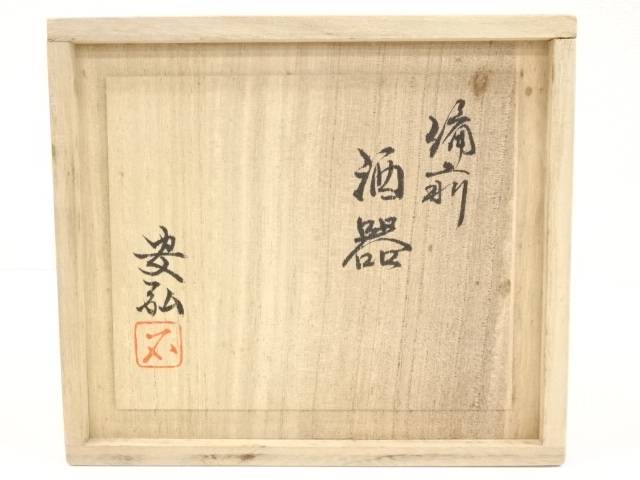 備前
酒器
安弘